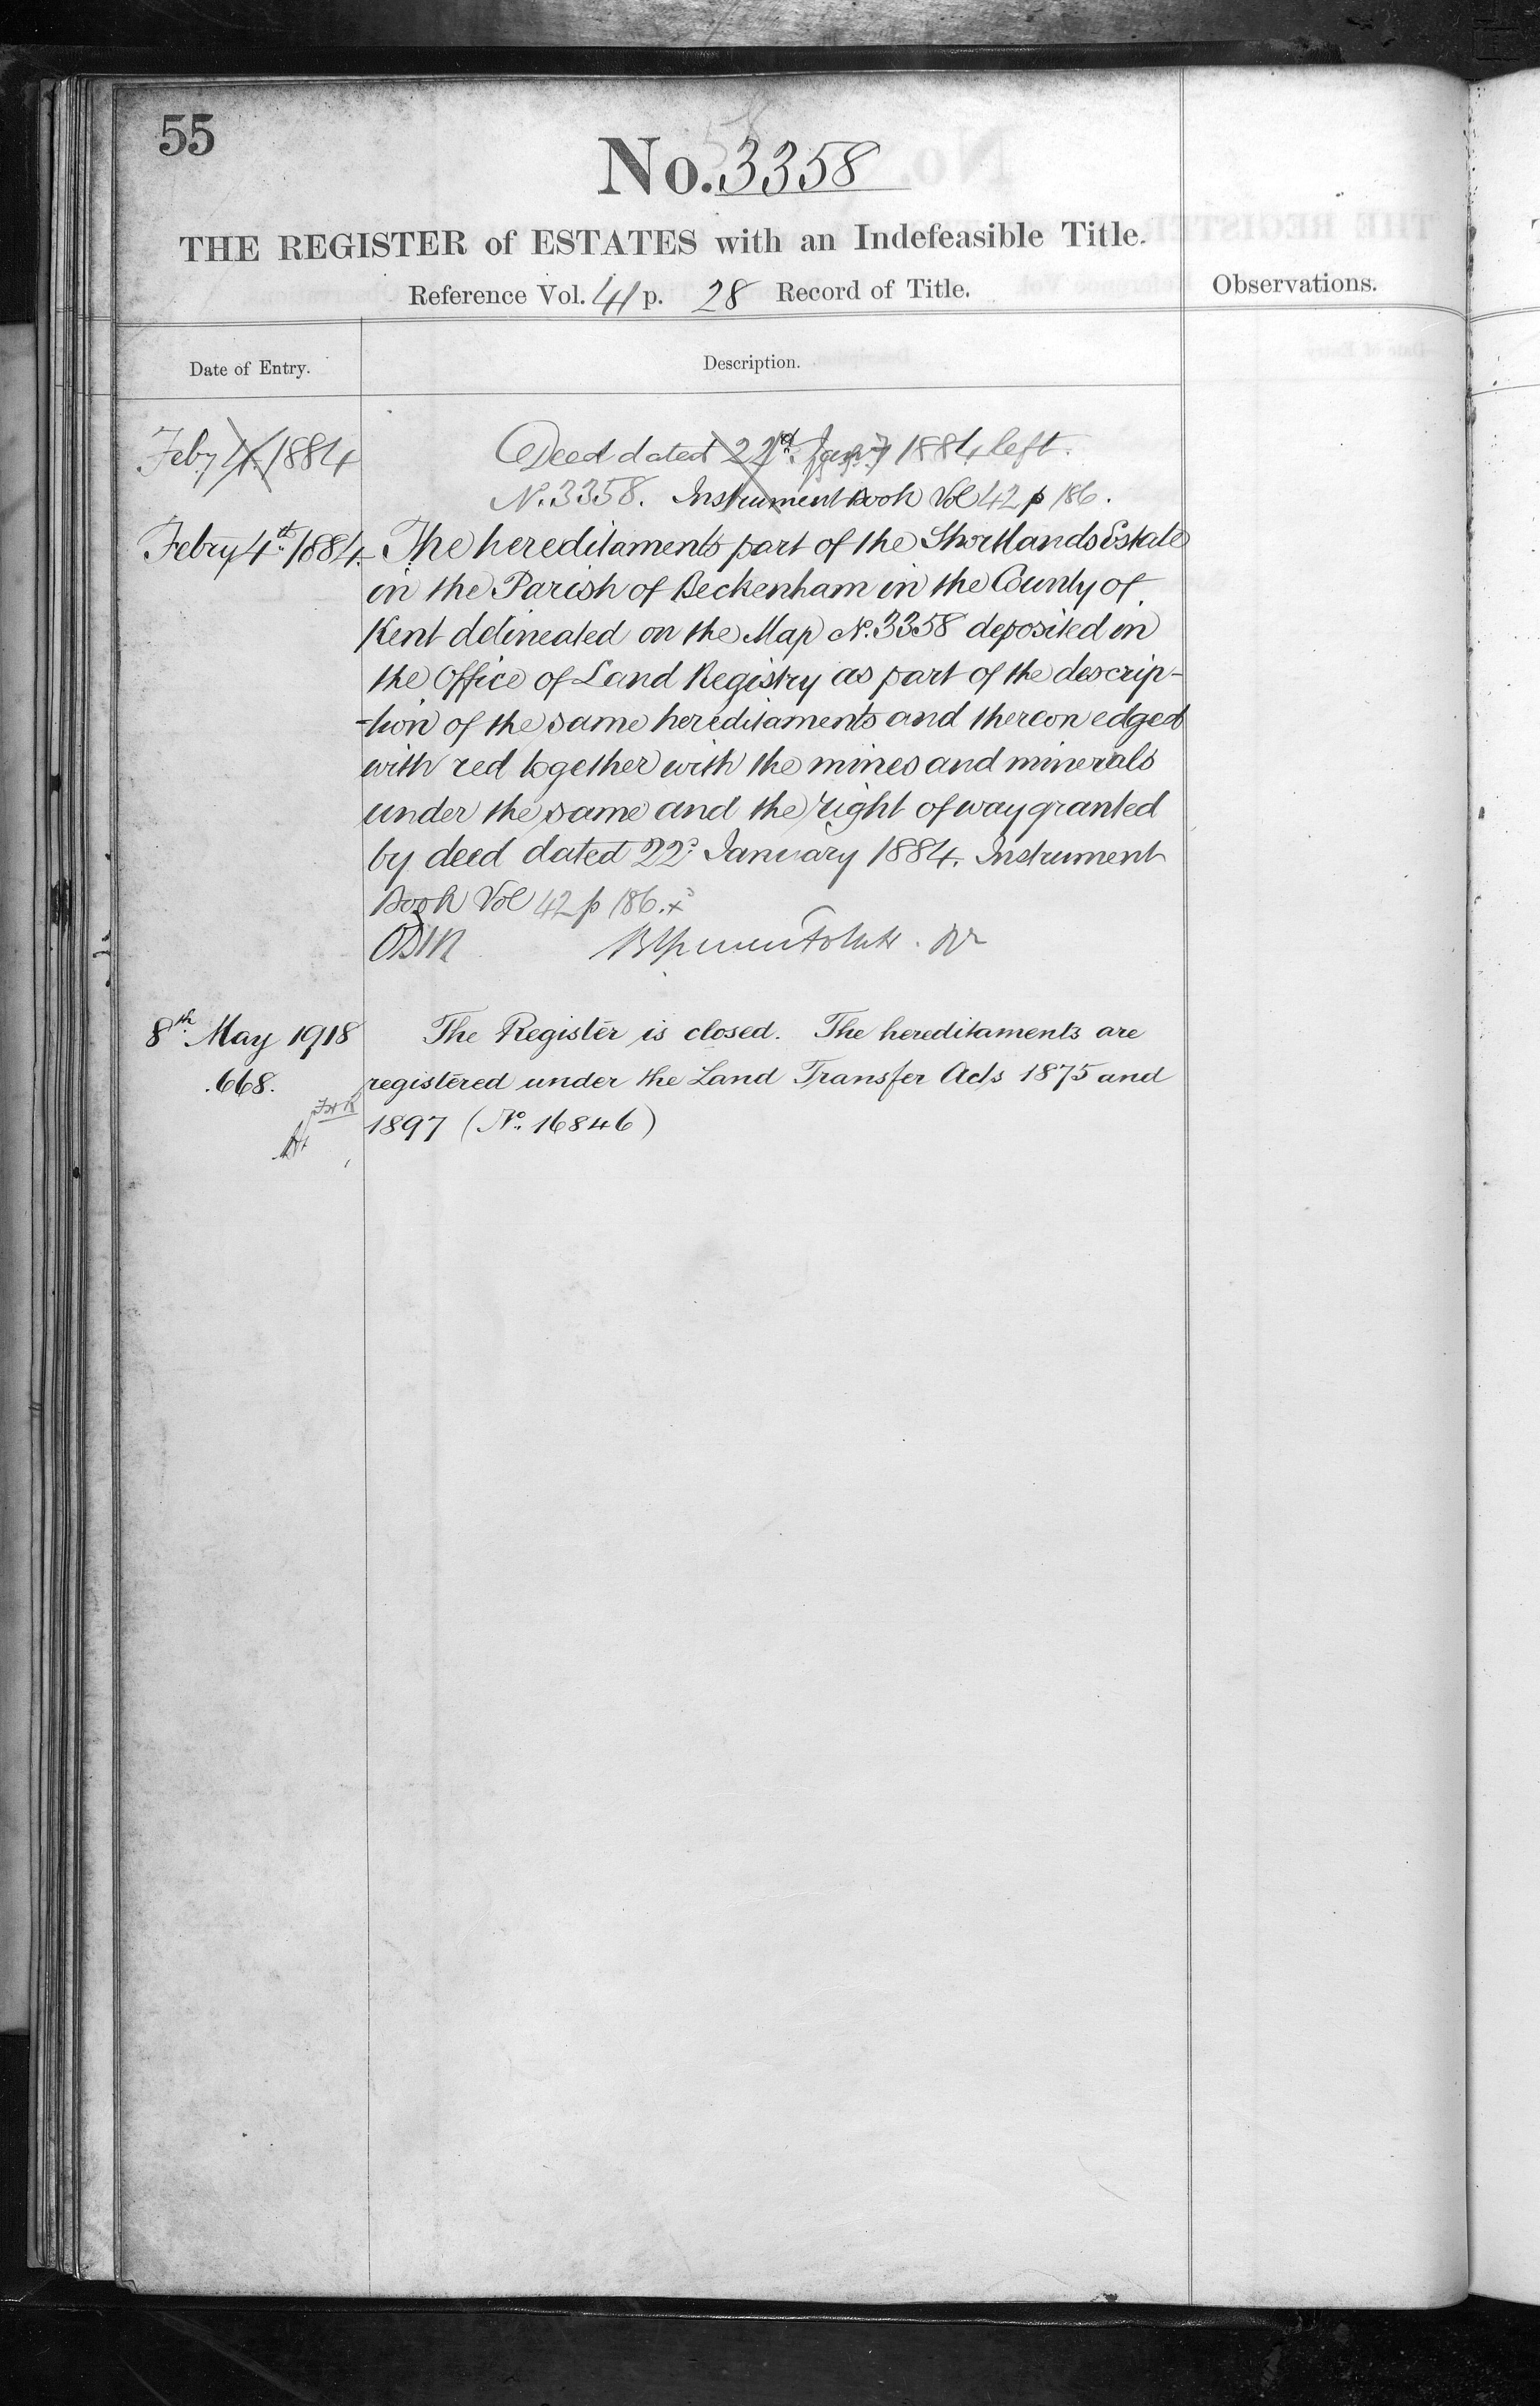 55
No. 3358
THE REGISTER of ESTATES with an Indefeasible Title.
Reference Vol. 41 p. 28 Record of Title.
Observations.
Date of Entry.
Description.
Feby 4. 1884
Deed dated 22d. Jany 1884 left.
No. 3358. Instrument Book Vol 42 p 186.
Febry 4th. 1884.
The hereditaments part of the Shortlands Estate
in the Parish of Beckenham in the County of
Kent delineated on the Map No. 3358 deposited in
the Office of Land Registry as part of the descrip-
-tion of the same hereditaments and thereon edged
with red together with the mines and minerals
under the same and the right of way granted
by deed dated 22d. January 1884. Instrument
Book Vol 42 p 186.
8th. May 1918
The Register is closed. The hereditaments are
.668.
registered under the Land Transfer Acts 1875 and
1897 (No. 16846)